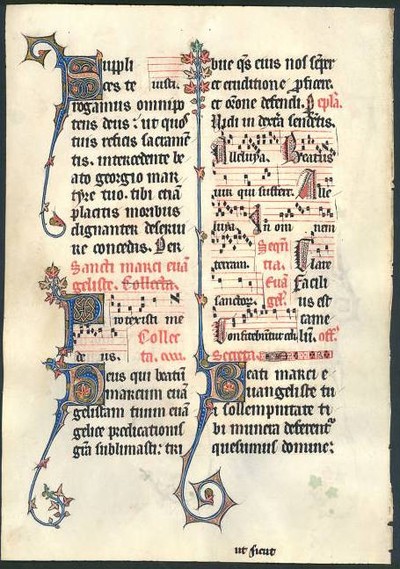 Suppli
ces te iusti.
rogamus omnip
tens deus: ut quos
tuis reficis sacramen
tis. intercedente be
ato georgio mar
tyre tuo. tibi etiam
placitis moribus
dignanter deservi
re concedas. Per
Sancti marci euan
geliste. Collecta.
Protexisti me
Collec
de us. ta.
Deus qui beatum
marcum euan
gelistam tuum euan
gelice predicationis
gratia sublimasti: tri
bue qs eius nos semper
et eruditione proficere.
et oratione defendi. Per
epla.
Alleluya. Beatus
uir qui suffert. Alle
luya. In om nem
terram. Sequen
tia. late
Euan Facili
sanctorum gel. us est
came
Confitebuntur celi lum. off.
Secreta.
Beati marci e
uangeliste tu
i sollempnitate ti
bi munera deferentes
quesumus domine:
ut sicut